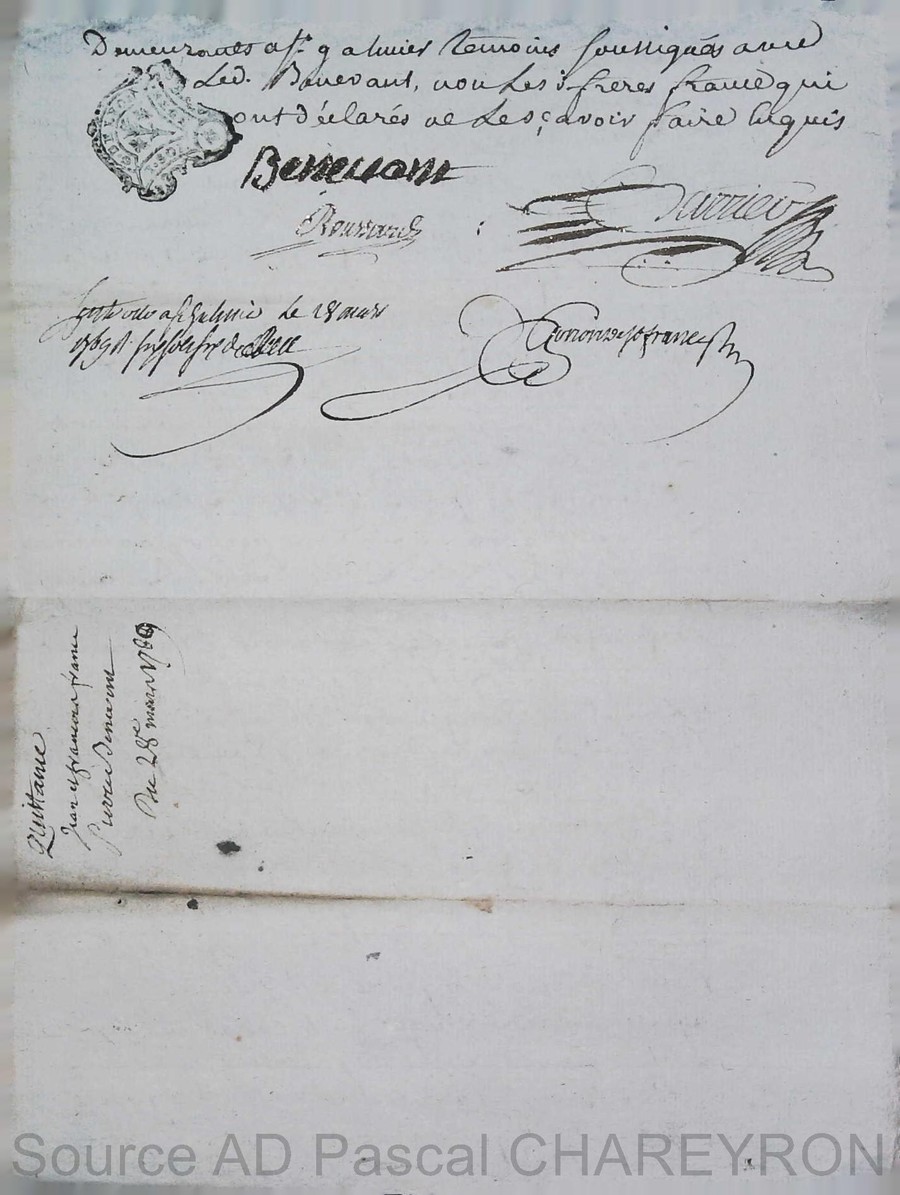 Demeurants a St g almier temoins soussignés avec
Led. Benevant, non Les d freres france qui
ont déclarés ne Le sçavoir faire Enquis
Benevant
Roussard
Barrieu
a st Galmier Le 28 mars
1769
Quittance
Jean et francois france
Pierre Benevant
Du 28e mars 1769
Source AD Pascal CHAREYRON